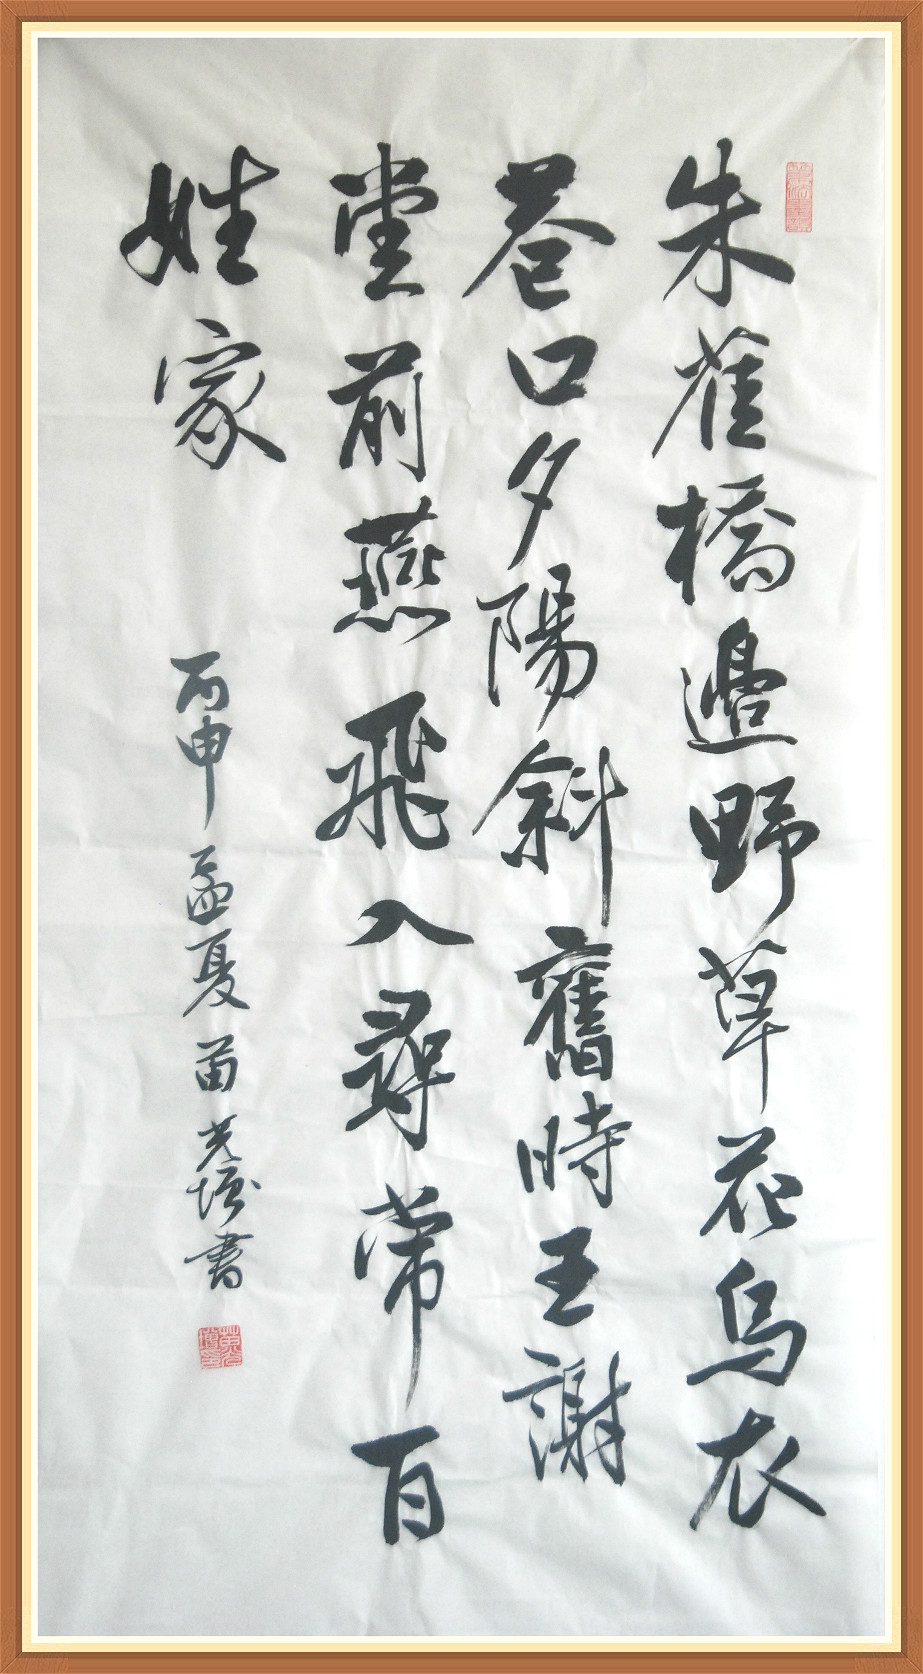 朱雀橋邊野草花烏衣
巷口夕陽斜舊時王謝
堂前燕飛入尋常百
姓家
丙申孟夏苗光增書